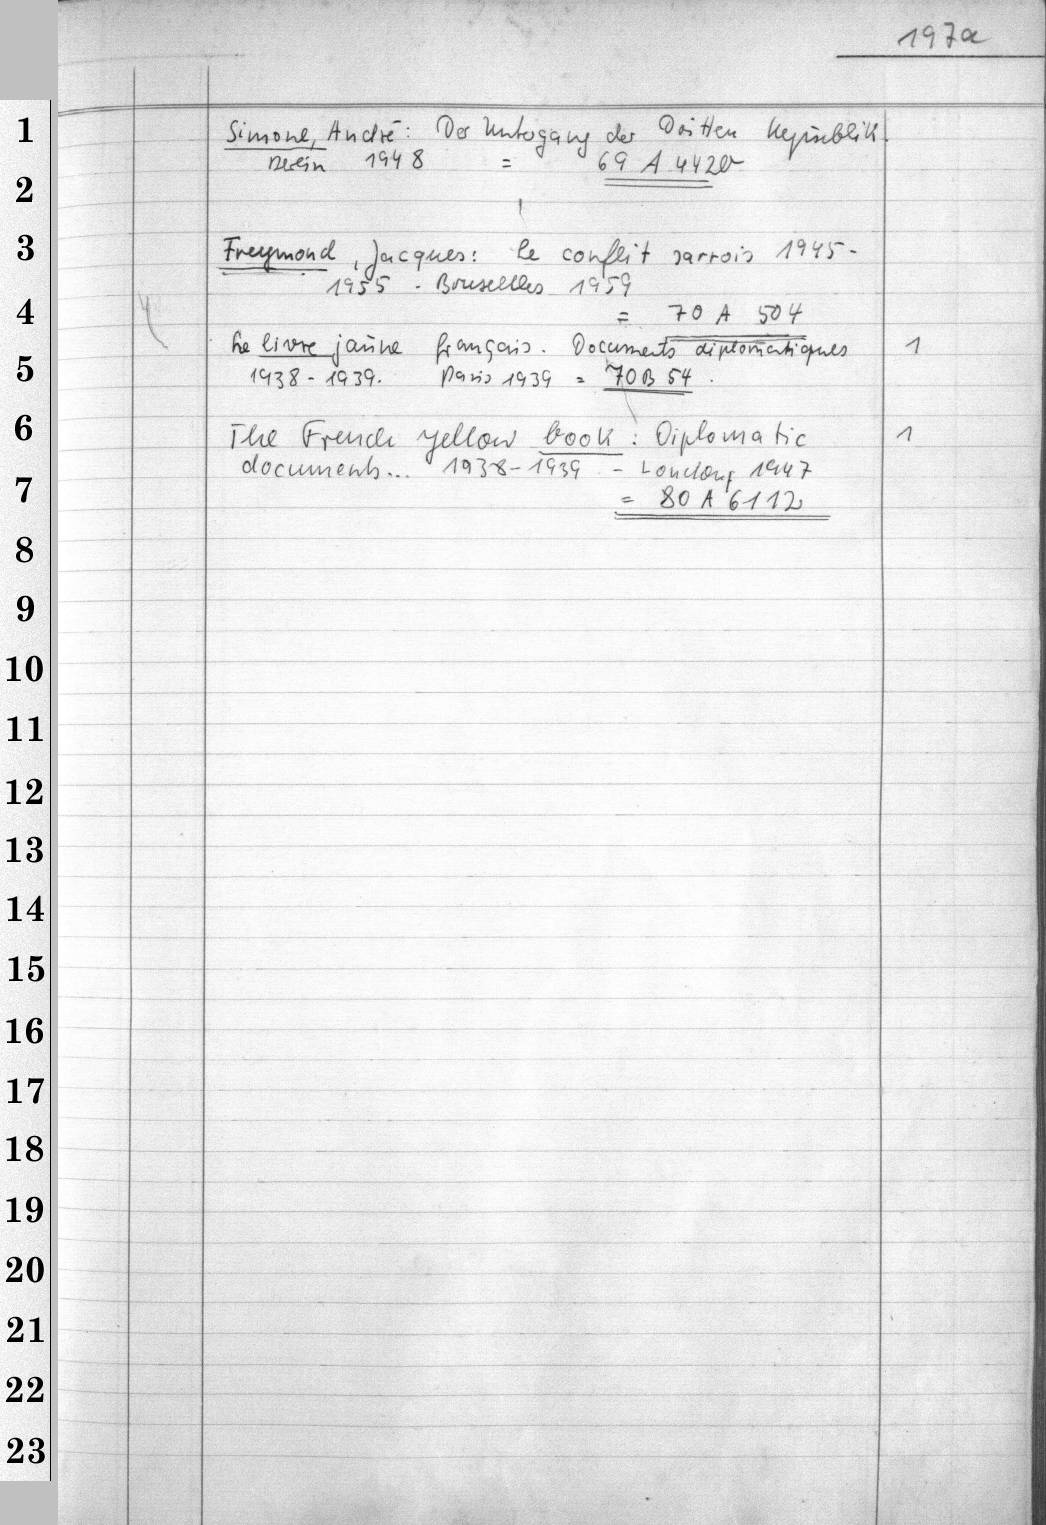 197a
1
Simone, André: Der Untergang der Dritten Republik.
Berlin 1948 = 69 A 4420
2
3
Freymond, Jacques: Le conflit sarrois 1945-
1955 - Bruxelles 1959
4
= 70 A 504
Le livre jaune français. Documents diplomatiques 1
5
1938-1939. Paris 1939 = 70B 54.
6
The French yellow book: Diplomatic 1
documents... 1938-1939 - London, 1947
7
= 80 A 6112
8
9
10
11
12
13
14
15
16
17
18
19
20
21
22
23